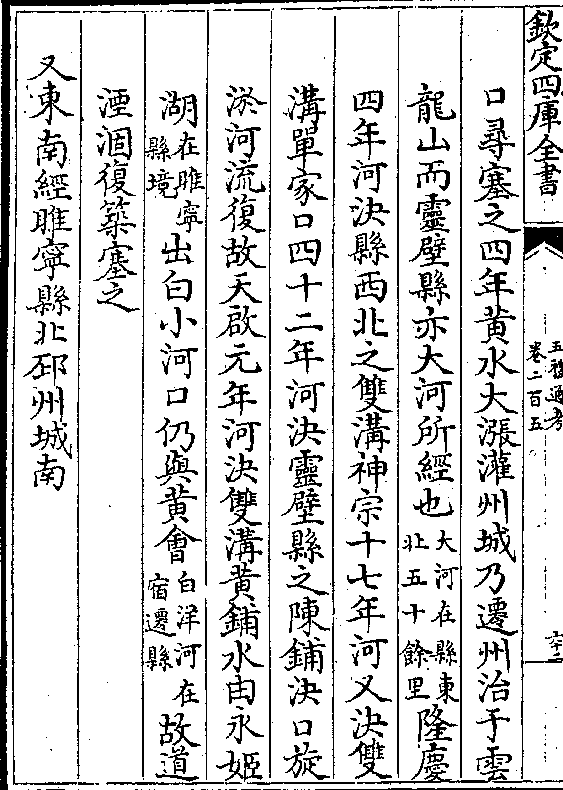 欽定四庫全書
五禮通考
卷二百五
六十二
口尋塞之四年黃水大漲灌州城乃遷州治于雲
龍山而靈壁縣亦大河所經也大河在縣東北五十餘里隆慶
四年河決縣西北之雙溝神宗十七年河又決雙
溝單家口四十二年河決靈壁縣之陳鋪決口旋
淤河流復故天啟元年河決雙溝黃鋪水由永姬
湖在睢寧縣境出白小河口仍與黃會白洋河在宿遷縣故道
湮涸復築塞之
又東南經睢寧縣北邳州城南